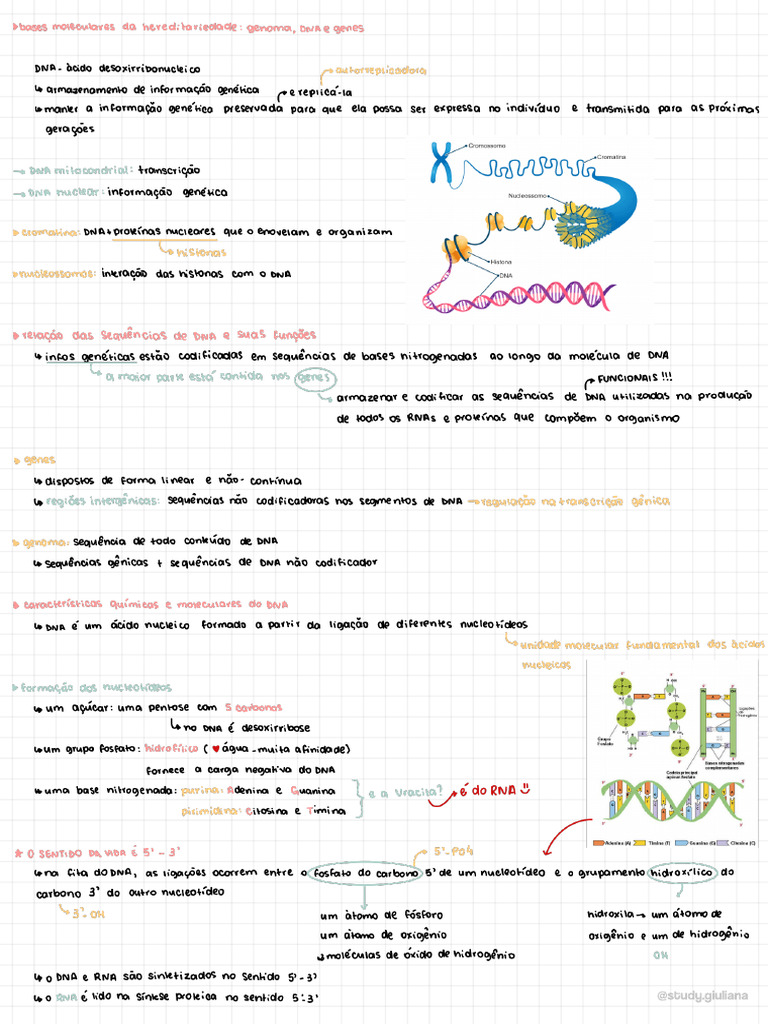 bases moleculares da hereditariedade: genoma, DNA e genes
DNA - ácido desoxirribonucleico
autorreplicadora
↳ armazenamento de informação genética
e replicá-la
↳ manter a informação genética preservada para que ela possa ser expressa no indivíduo e transmitida para as próximas
gerações
→ DNA mitocondrial: transcrição
→ DNA nuclear: informação genética
cromatina: DNA + proteínas nucleares que o enovelam e organizam
↳ histonas
nucleossomos: interação das histonas com o DNA
Cromossomo
Cromatina
Nucleossomo
Histona
DNA
relação das sequências de DNA e suas funções
↳ infos genéticas estão codificadas em sequências de bases nitrogenadas ao longo da molécula de DNA
↳ a maior parte está contida nos genes
FUNCIONAIS !!!
↳ armazenar e codificar as sequências de DNA utilizadas na produção
de todos os RNAs e proteínas que compõem o organismo
genes
↳ dispostos de forma linear e não-contínua
↳ regiões intergênicas: sequências não codificadoras nos segmentos de DNA → regulação na transcrição gênica
genoma: sequência de todo conteúdo de DNA
↳ sequências gênicas + sequências de DNA não codificador
características químicas e moleculares do DNA
↳ DNA é um ácido nucleico formado a partir da ligação de diferentes nucleotídeos
↳ unidade molecular fundamental dos ácidos
nucleicos
formação dos nucleotídeos
↳ um açúcar: uma pentose com 5 carbonos
↳ no DNA é desoxirribose
↳ um grupo fosfato: hidrofílico (♥ água - muita afinidade)
fornece a carga negativa do DNA
↳ uma base nitrogenada: purina: Adenina e Guanina
pirimidina: Citosina e Timina
e a Uracila?
é do RNA
Grupo
Fosfato
Bases nitrogenadas
complementares
Adenina (A) Timina (T) Guanina (G) Citosina (C)
* O SENTIDO DA VIDA É 5' - 3'
5'-PO4
↳ na fita do DNA, as ligações ocorrem entre o fosfato do carbono 5' de um nucleotídeo e o grupamento hidroxílico do
carbono 3' do outro nucleotídeo
↳ 3'-OH
um átomo de fósforo
um átomo de oxigênio
moléculas de óxido de hidrogênio
hidroxila → um átomo de
oxigênio e um de hidrogênio
OH
↳ o DNA e RNA são sintetizados no sentido 5'-3'
↳ o RNA é lido na síntese proteica no sentido 5'-3'
@study.giuliana